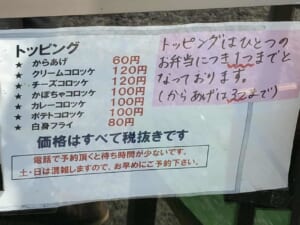 トッピング
★ からあげ 60円
★ クリームコロッケ 120円
★ チーズコロッケ 120円
★ かぼちゃコロッケ 100円
★ カレーコロッケ 100円
★ ポテトコロッケ 100円
★ 白身フライ 80円
価格はすべて税抜きです
電話で予約頂くと待ち時間が少ないです。
土・日は混雑しますので、お早めにご予約下さい。
トッピングはひとつの
お弁当につき1つまでと
なっております。
(からあげは3つまで)